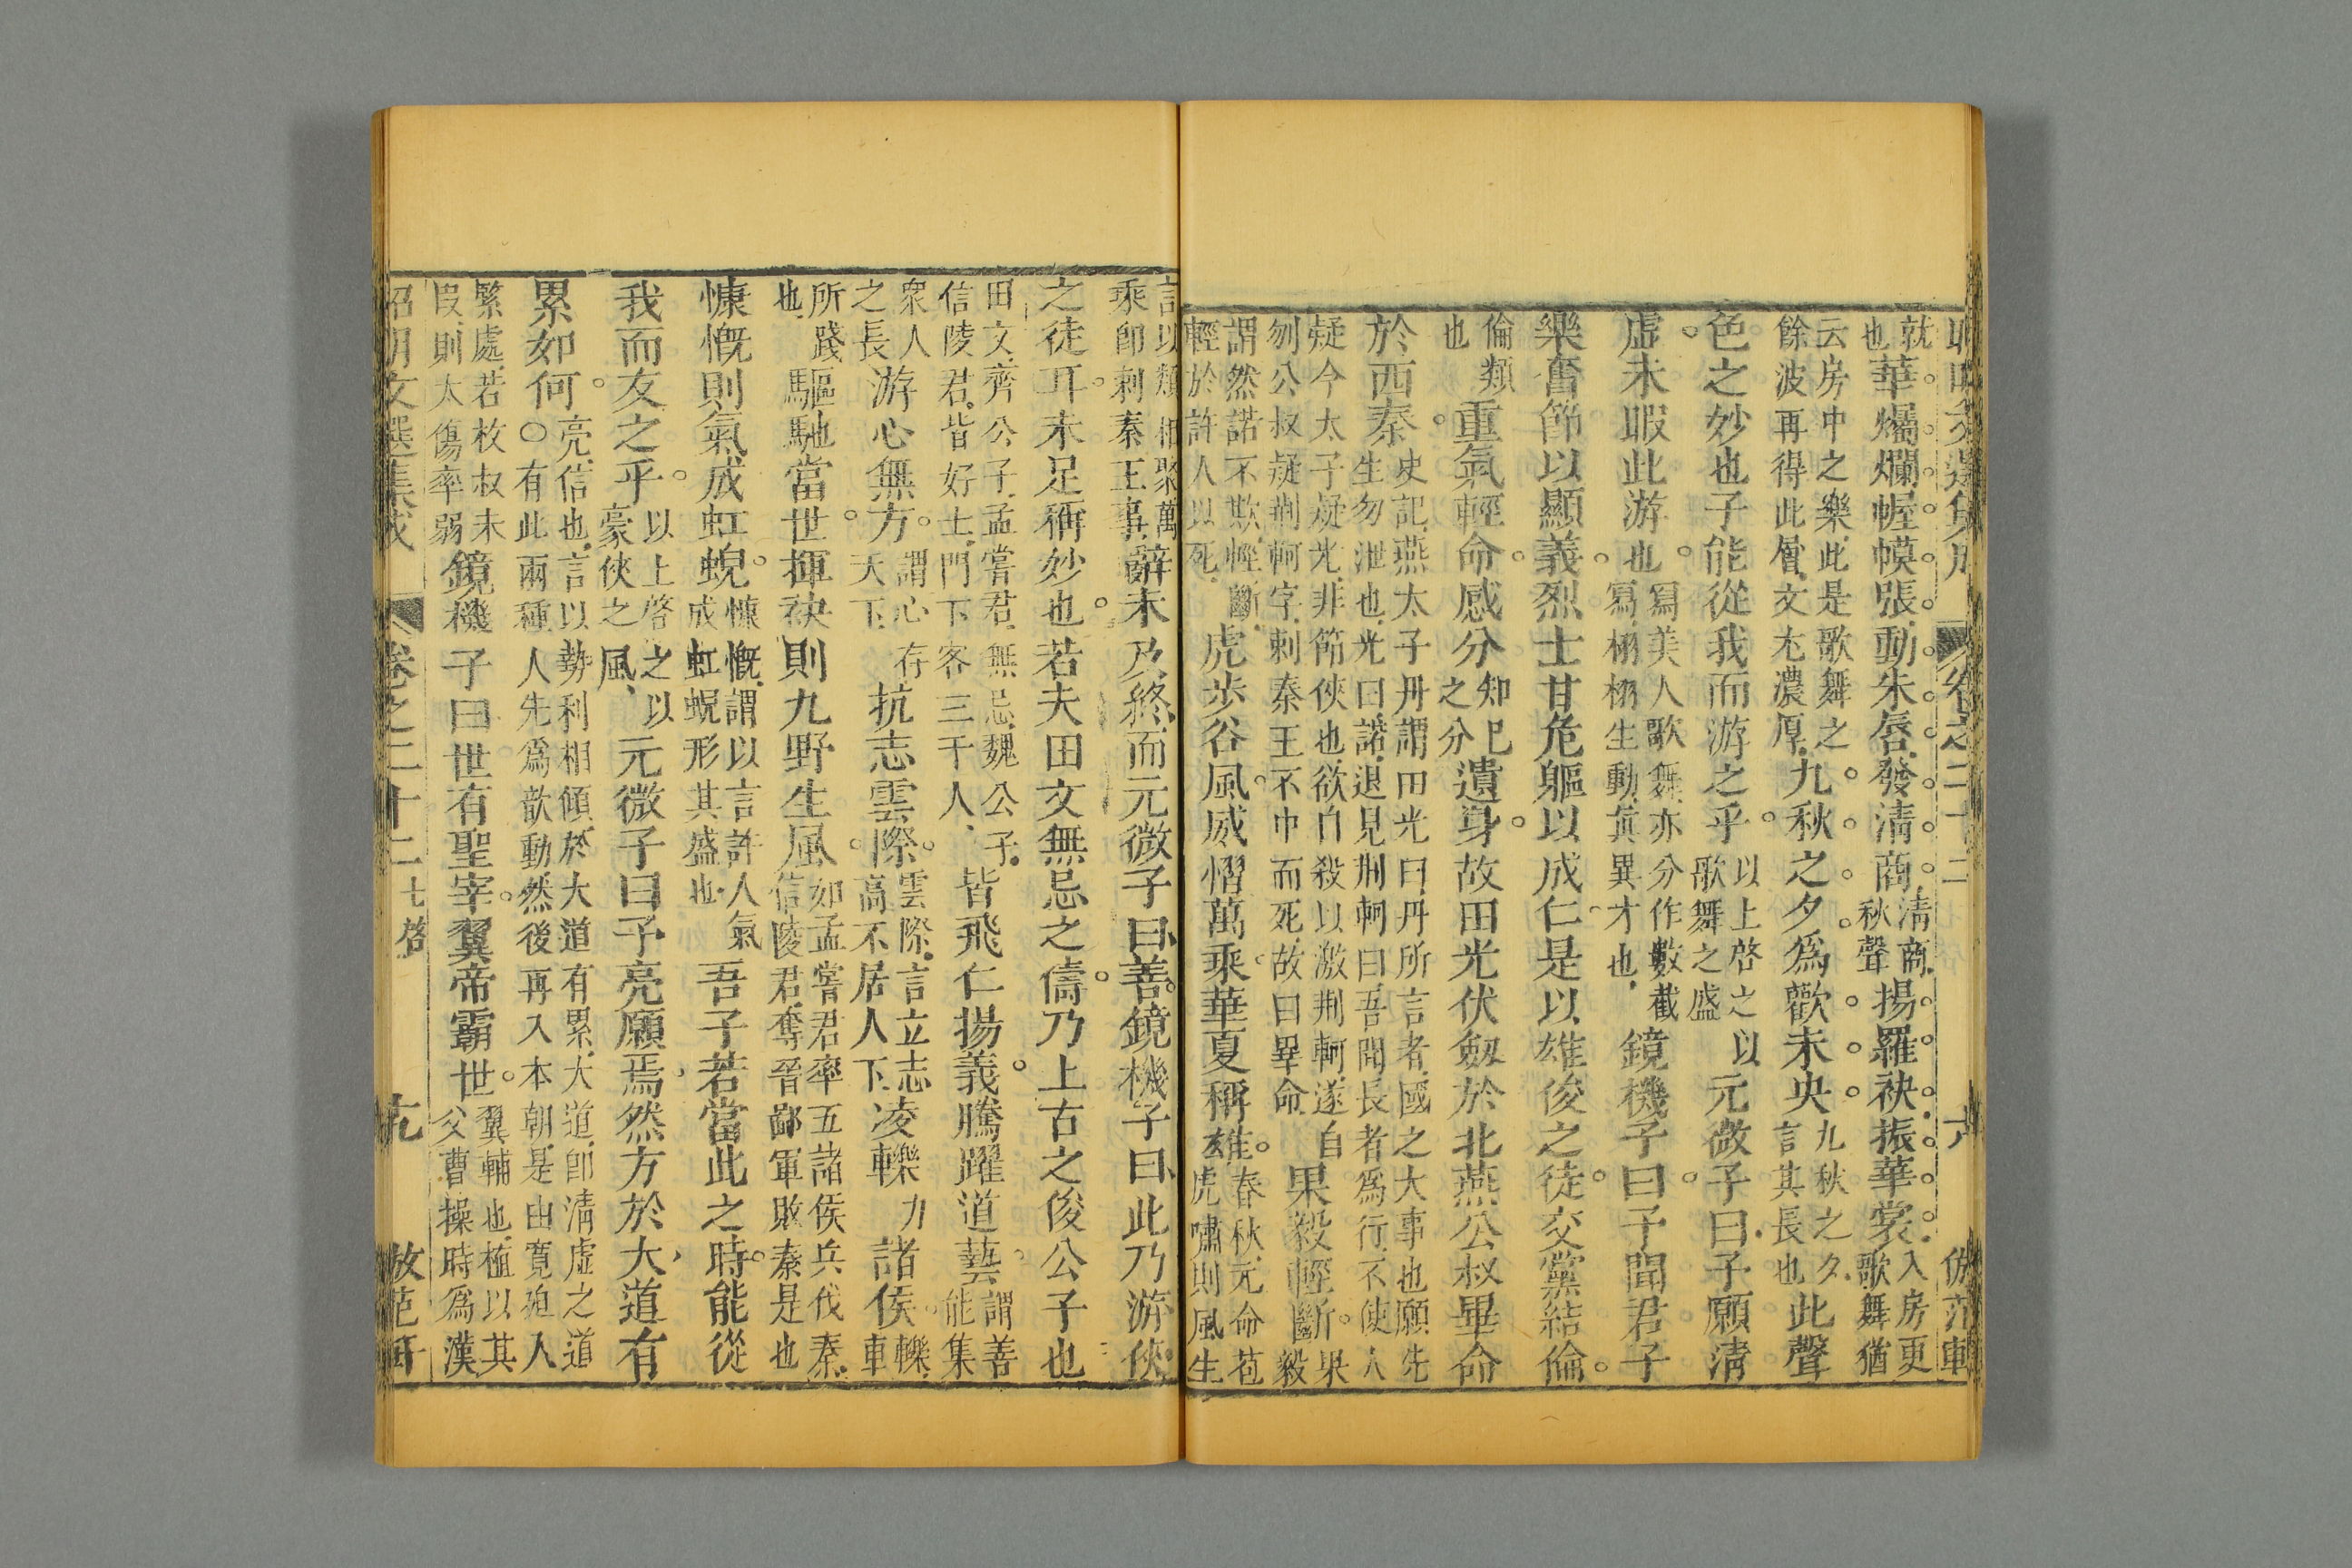 昭明文選集成 卷之二十二 六 倣范軒
就也華爥爛幄幙張動朱唇發清商清商秋聲揚羅袂振華裳入房更歌舞猶
云房中之樂此是歌舞之餘波再得此層文尤濃厚九秋之夕爲歡未央九秋之夕言其長也此聲
色之妙也子能從我而游之乎以上啓之以歌舞之盛元微子曰予願清
虛未暇此游也寫美人歌舞亦分作數截寫栩栩生動眞異才也鏡機子曰予聞君子
樂奮節以顯義烈士甘危軀以成仁是以雄俊之徒交黨結倫
倫類也重氣輕命感分知己之分遺身故田光伏劍於北燕公叔畢命
於西秦史記燕太子丹謂田光曰丹所言者國之大事也願先生勿泄也光曰諾退見荆軻曰吾聞長者爲行不使人
疑今太子疑光非節俠也欲自殺以激荆軻遂自刎公叔疑荆軻字刺秦王不中而死故曰畢命果毅輕斷果毅
謂然諾不欺輕斷輕於許人以死虎步谷風威慴萬乘華夏稱雄春秋元命苞虎嘯則風生
言以類相聚萬乘卽刺秦王事辭未及終而元微子曰善鏡機子曰此乃游俠
之徒耳未足稱妙也若夫田文無忌之儔乃上古之俊公子也
田文齊公子孟嘗君無忌魏公子信陵君皆好士門下客三千人皆飛仁揚義騰躍道藝謂善能集
衆人之長游心無方謂心存天下抗志雲際雲際言立志高不居人下凌轢諸侯轢車
所踐也驅馳當世揮袂則九野生風如孟嘗君率五諸侯兵伐秦信陵君奪晉鄙軍敗秦是也
慷慨則氣成虹蜺慷慨謂以言許人氣成虹蜺形其盛也吾子若當此之時能從
我而友之乎以上啓之以豪俠之風元微子曰予亮願焉然方於大道有
累如何亮信也言以勢利相傾於大道有累大道卽清虛之道〇有此兩種人先爲歆動然後再入本朝是由寬廹人
緊處若枚叔未叚則太傷率弱鏡機子曰世有聖宰翼帝霸世翼輔也植以其父曹操時爲漢
昭明文選集成 卷之二十二 七啓 九 倣范軒